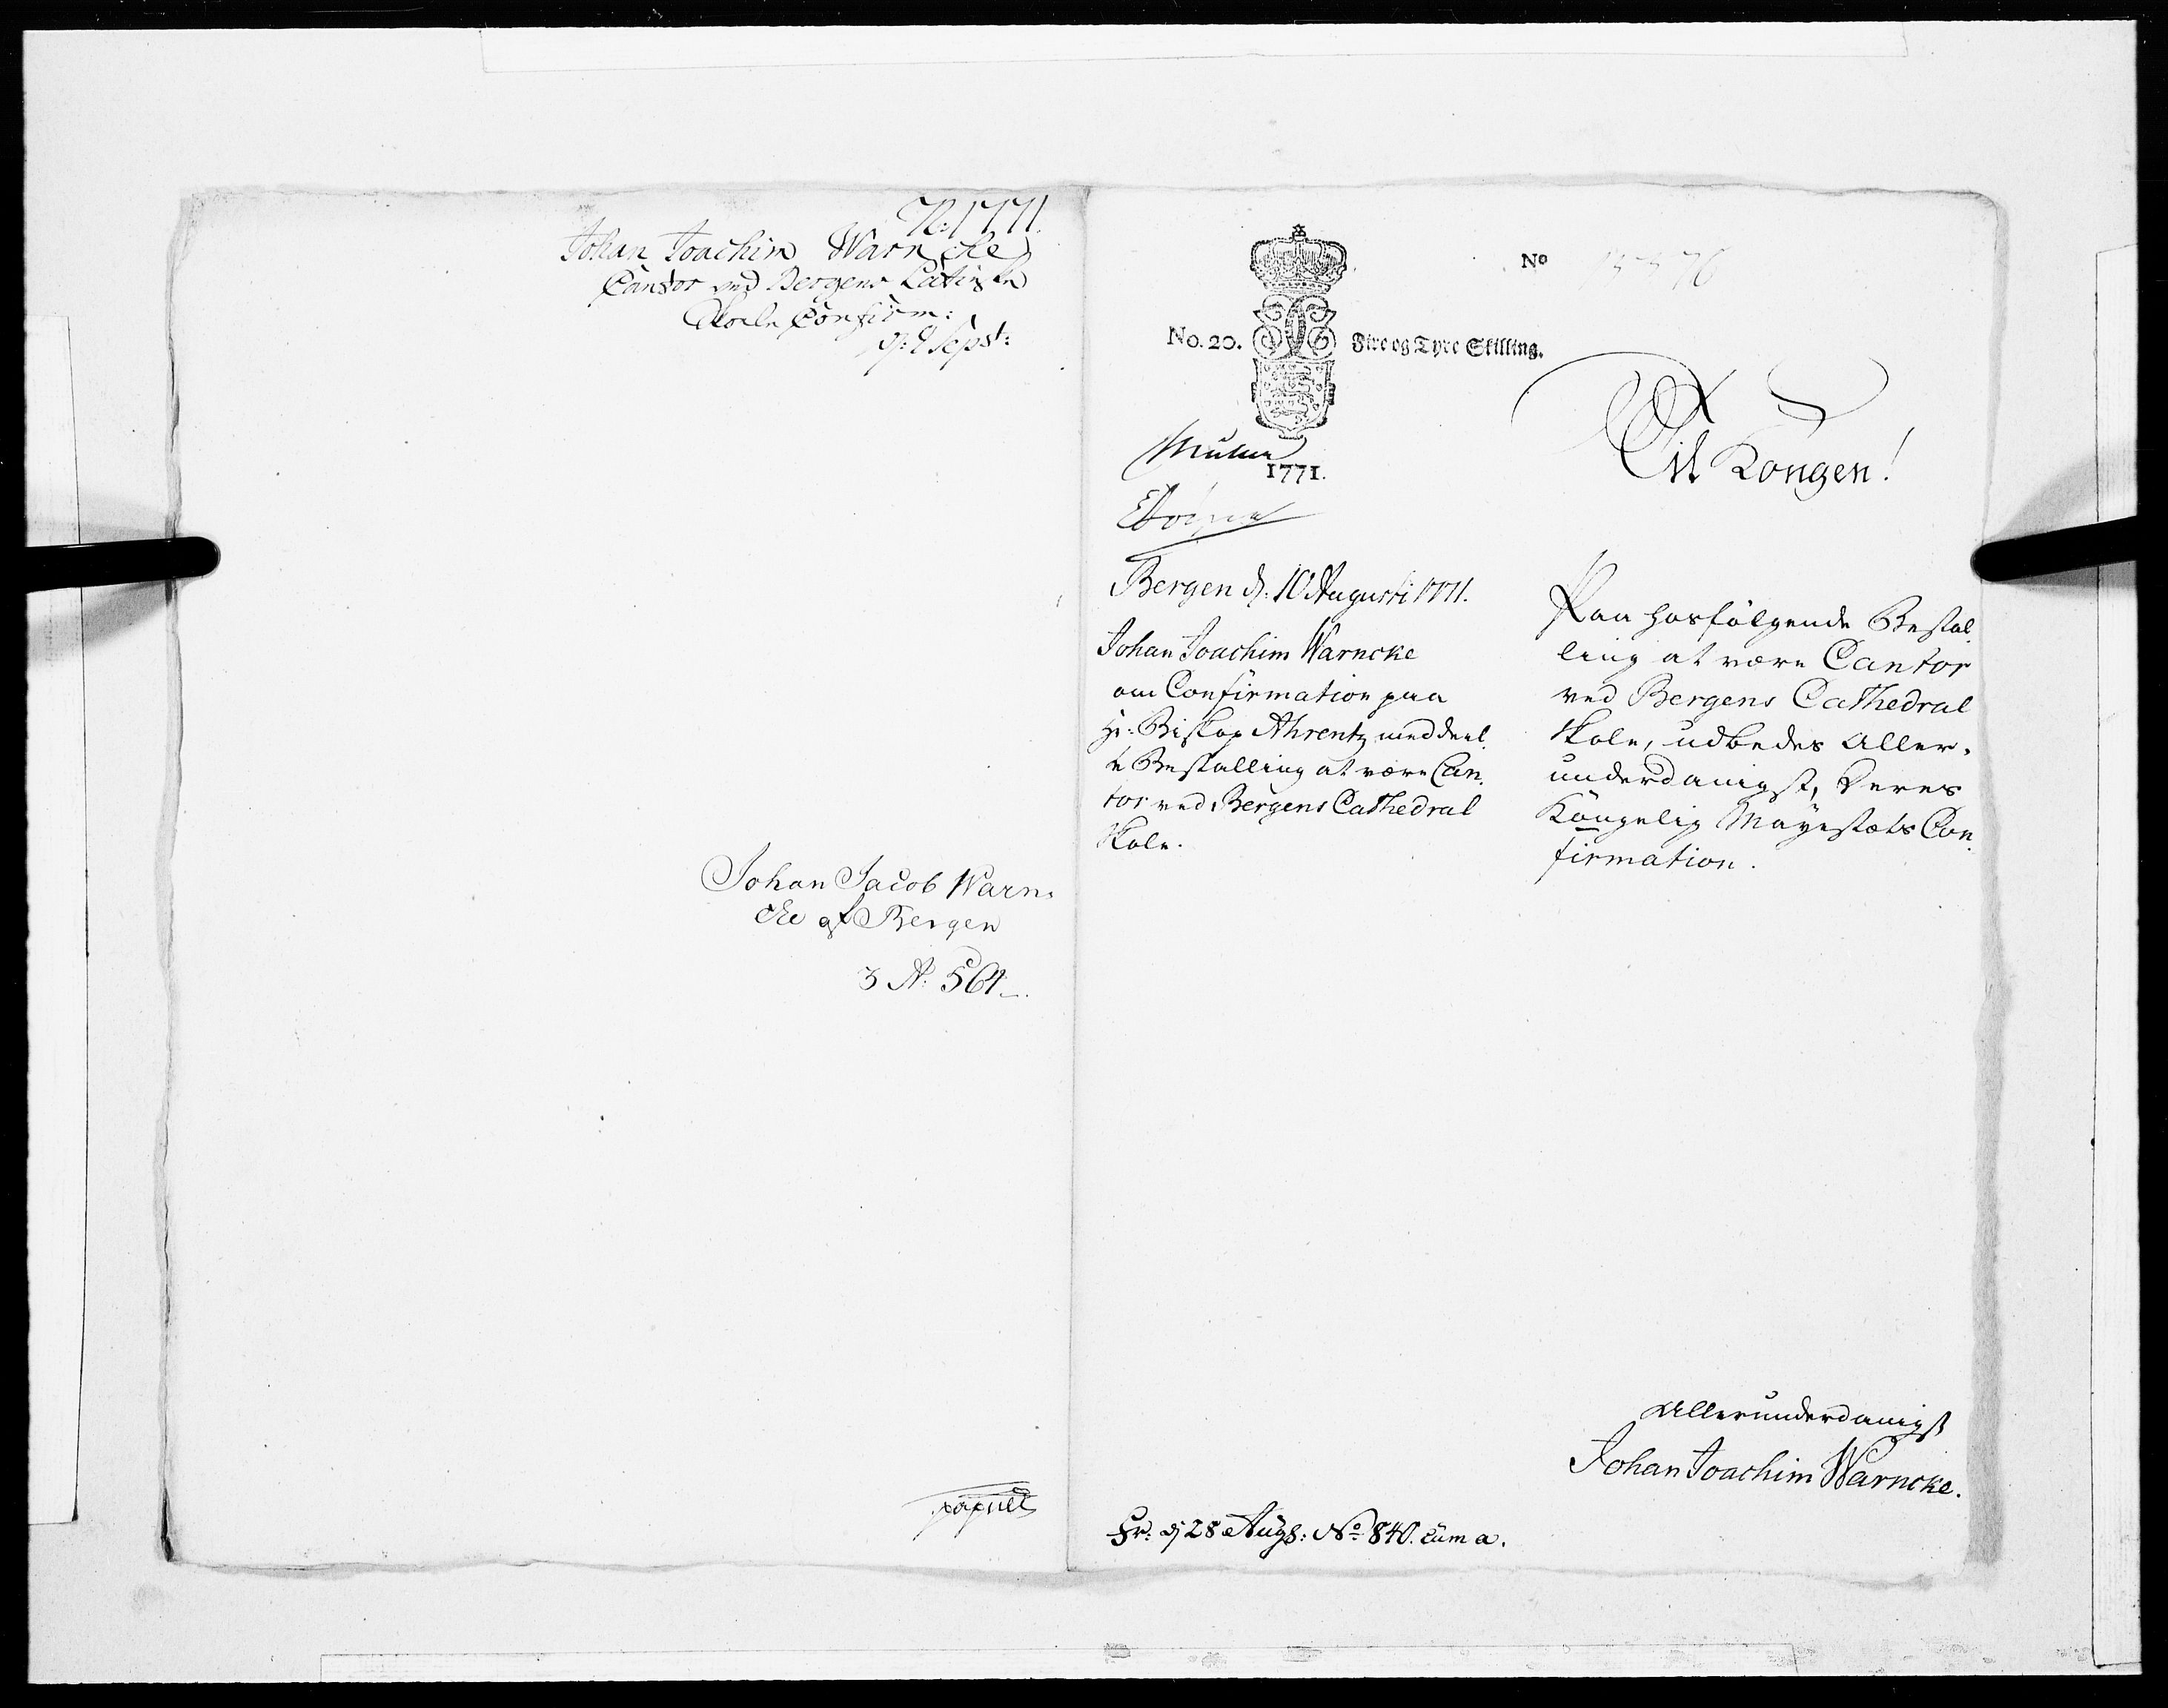 1771.
Johan Joachim Warncke
Cantor ved Bergens Latinske
Skoele Confirm:
9 Sept:
Johan Jacob Warn-
cke af Bergen
3 A: 564
No. 20.
Fire og Tyve Skilling.
No
1771.
Til Kongen!
Bergen d: 10 Augusti 1771.
Johan Joachim Warncke
om Confirmation paa
Hr: Biskop Ahrentz meddeel
te Bestalling at være Can.
tor ved Bergens Cathedral
Skole.
Paa hosfölgende Bestal
ling at være Cantor
ved Bergens Cathedral
Skole, udbedes Aller-
underdanigst, Deres
Kongelig Mayestæts Con
firmation.
Allerunderdanigst
Johan Joachim Warncke.
Fr: d 28 Augs: No 840. cum a.